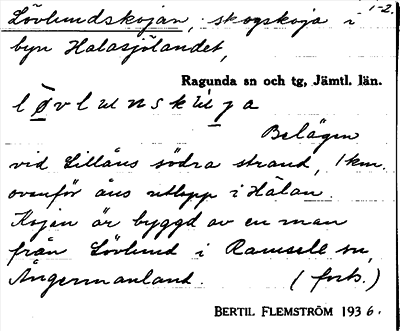 1-2.
Lövlundskojan, skogskoja i
byn Halasjölandet,
Ragunda sn och tg, Jämtl. län.
Belägen
vid Lillåns södra strand, 1 km.
ovanför åns utlopp i Hälan.
Kojan är byggd av en man
från Lövlund i Ramsele sn,
Ångermanland. (forts.)
BERTIL FLEMSTRÖM 1936.